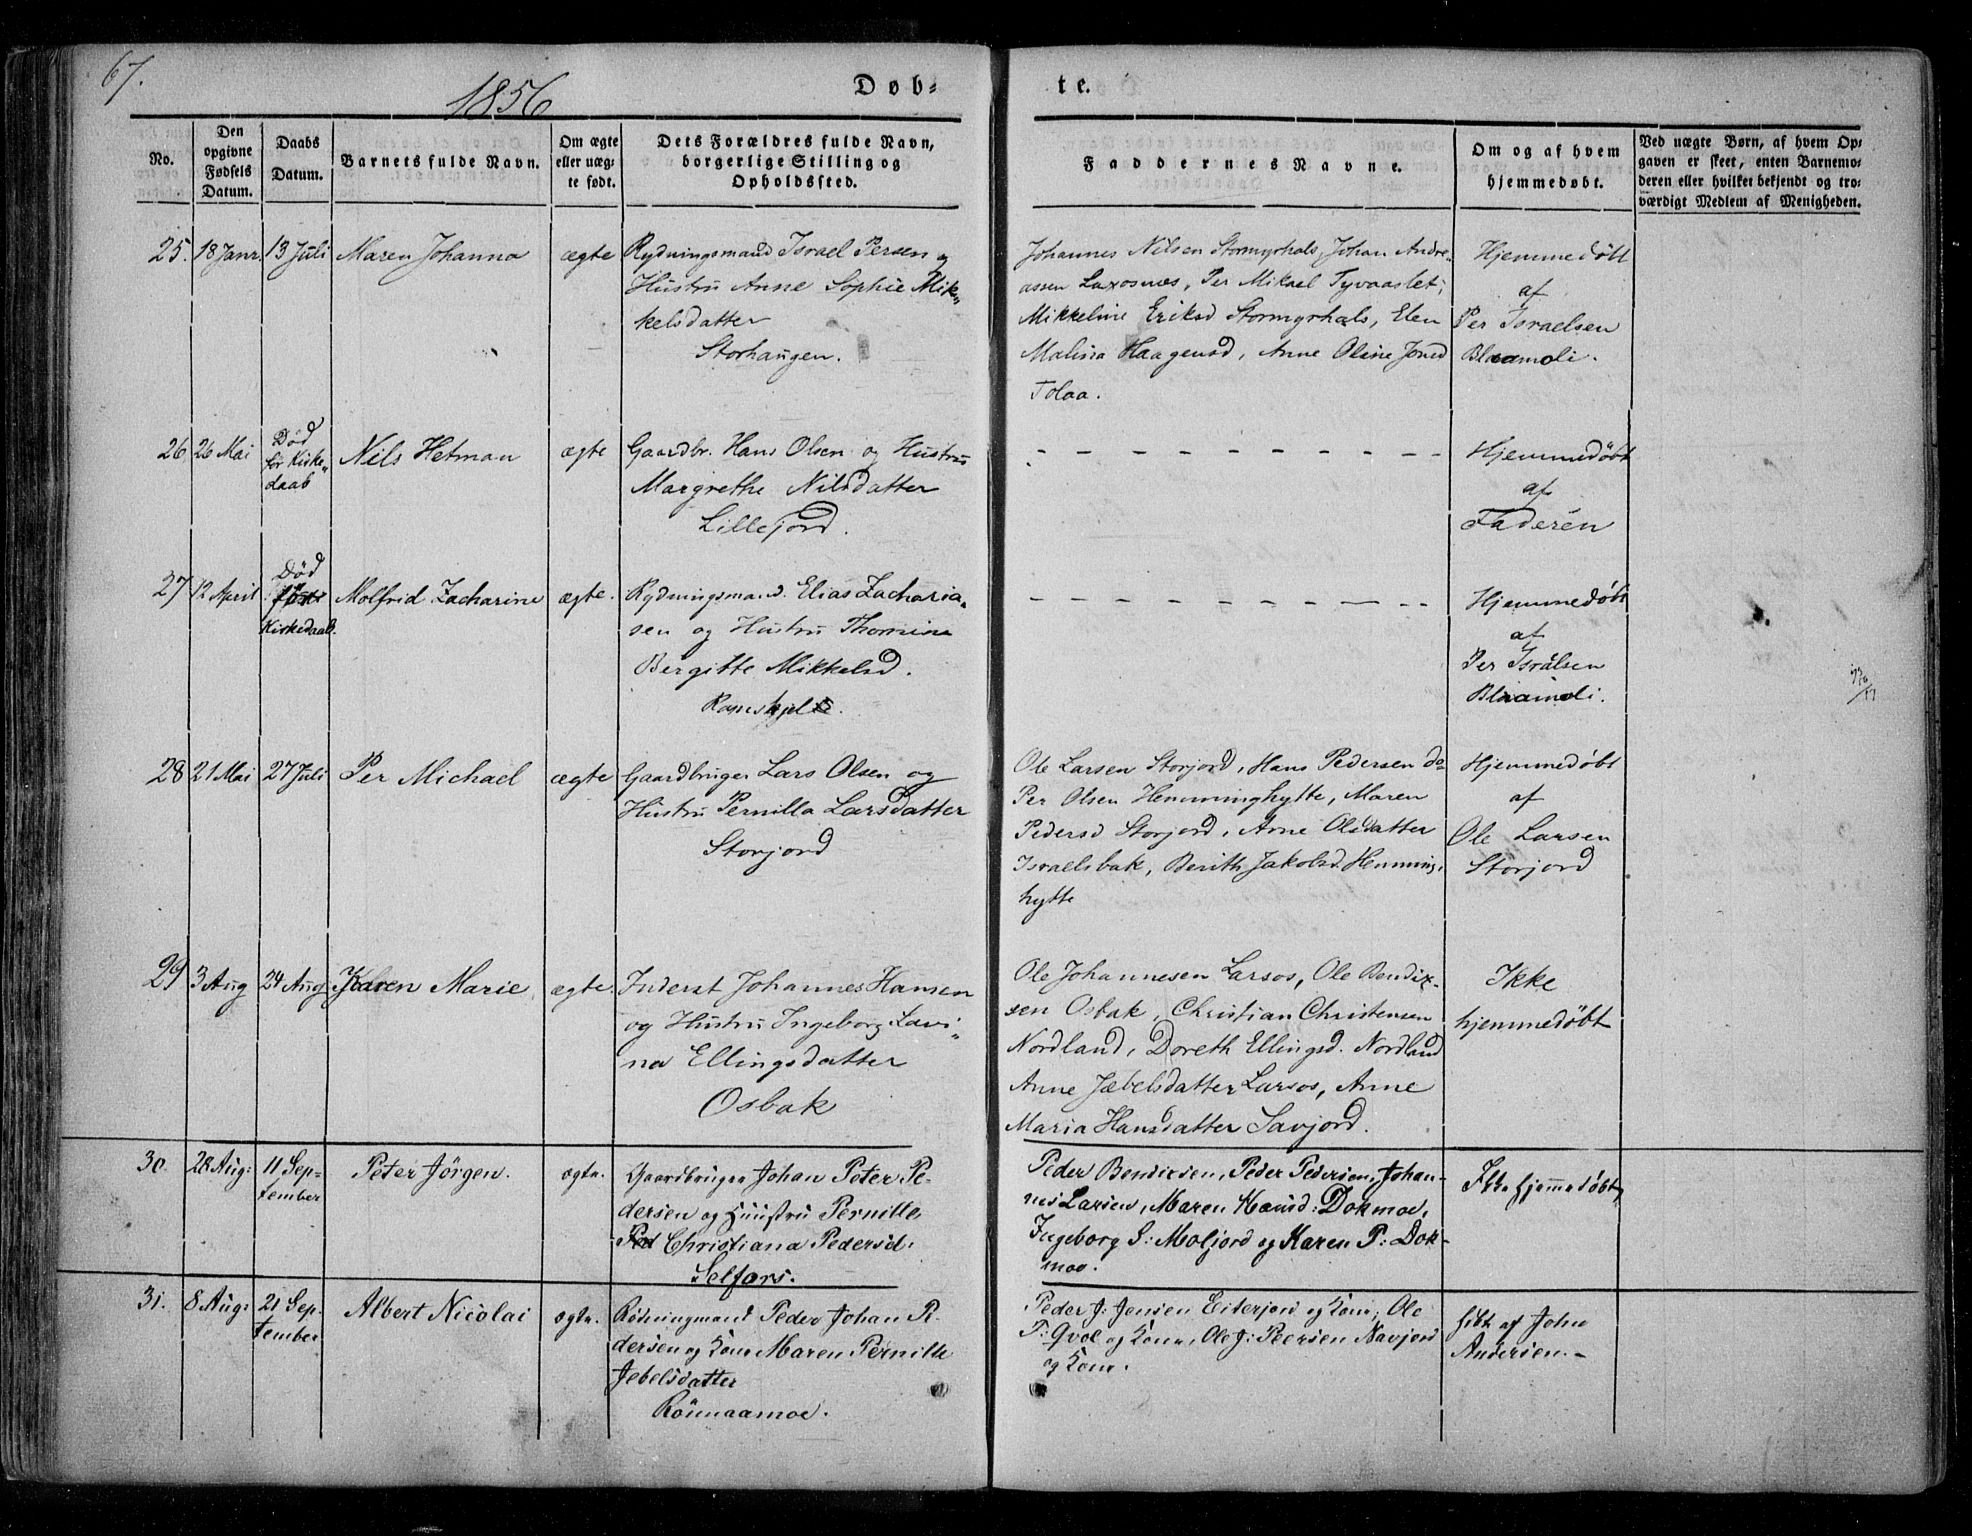 67.
1856
Døb-
te.
No.
Den opgivne Fødsels Datum.
Daabs Datum.
Barnets fulde Navn.
Om ægte eller uæg-te født.
Dets Forældres fulde Navn,
borgerlige Stilling og
Opholdssted.
Faddernes Navne.
Om og af hvem
hjemmedøbt.
Ved uægte Børn, af hvem Op-
gaven er skeet, enten Barnemo-
deren eller hvilket bekjendt og tro-
værdigt Medlem af Menigheden.
25. 18 Janr. 13 Juli Maren Johanna ægte Rydningsmand Israel Persen og
Hustru Anne Sophie Mik-
kelsdatter
Storhaugen.
Johannes Nilsen Stormyrhals, Johan Andre-
assen Laxosnes, Per Mikael Tyvaaslet,
Mikkeline Eriksd Stormyrhals, Elen
Malina Haagensd, Anne Oline Jonsd
Tolaa.
Hjemmedøbt
af
Per Israelsen
Blaamoli.
26 26 Mai Død
før Kirke-
daab
Nils Hetman ægte Gaardbr. Hans Olsen og Hustru
Margrethe Nilsdatter
Lillejord.
- - - - - - - - - - -
Hjemmedøbt
af
Faderen
27 12 April Død
før
Kirkedaab.
Molfrid Zacharine ægte. Rydningsmand. Elias Zacharia-
sen og Hustru Thomine
Bergitte Mikkelsd.
- - - - - - - - - - -
Hjemmedøbt
af
Per Isralsen
Blaamoli.
28 21 Mai 27 Juli Per Michael ægte Gaardbruger Lars Olsen og
Hustru Pernilla Larsdatter
Storjord
Ole Larsen Storjord, Hans Pedersen do
Per Olsen Hemminghytte, Maren
Pedersd Storjord, Arne Olsdatter
Israelsbak, Berith Jakobsd. Hemming-
hytte
Hjemmedøbt
af
Ole Larsen
Storjord
29 3 Aug 24 Aug Karen Marie ægte. Inderst Johannes Hansen
og Hustru Ingeborg Lavi-
na Ellingsdatter
Osbak
Ole Johannesen Larsos, Ole Bendix-
sen Osbak, Christian Christensen
Nordland, Doreth Ellingsd. Nordland
Anne Jæbelsdatter Larsos, Anne
Maria Hansdatter Savjord.
Ikke
hjemmedøbt
30. 28 Aug: 11 Sep-
tember
Peter Jörgen. ægte. Gaardbruger Johan Peter Pe-
dersen og Huustru Pernille
Christiana Pedersd.
Selfors.
Peder Bendixsen, Peder Pedersen, Johan-
nes Larsen, Maren Hansd: Dokmoe,
Ingeborg S: Moljord og Karen P: Dok-
moe.
Ikke hjemmedøbt
31. 8 Aug: 21 Sep-
tember
Albert Nicolai ægte. Rödningmand Peder Johan P-
dersen og Kone Maren Pernille
Jebelsdatter
Rönnaamoe.
Peder J: Jensen Eiterjord og Kone, Ole
P: Qvol og Kone, Ole J: Peersen Navjord
og Kone.
af John
Andersen.-